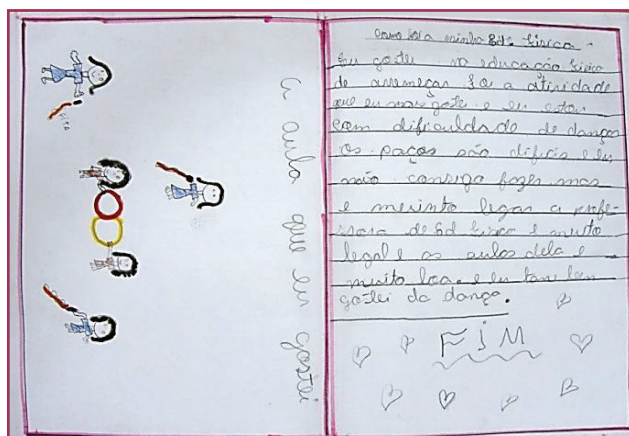 A aula que eu gostei
FITA
como foi a minha Ed. física
Eu gostei na educação física
de arremeças foi a atividade
que eu mas gostei e eu estou
com dificuldade de danças
os paços são dificis e eu
não consigo fazer mas
e mesinto legau a profe-
ssora de Ed física e muito
legal e as aulas dela e
muito boa. e eu tan bem
gostei da dança.
FiM